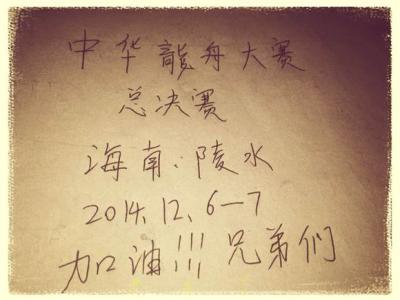 中华龍舟大赛
总决赛
海南·陵水
2014.12.6—7
加油!!!兄弟们